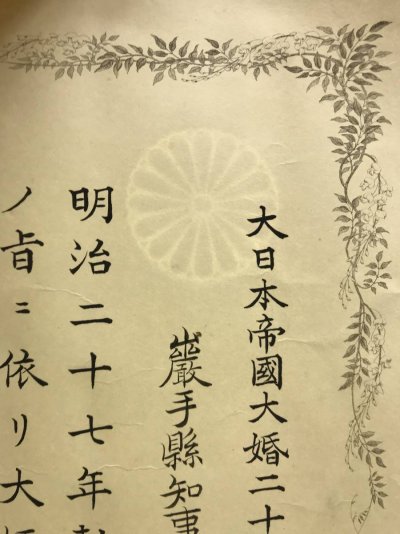 大日本帝國大婚二十
巖手縣知事
明治二十七年
ノ旨ニ依リ大